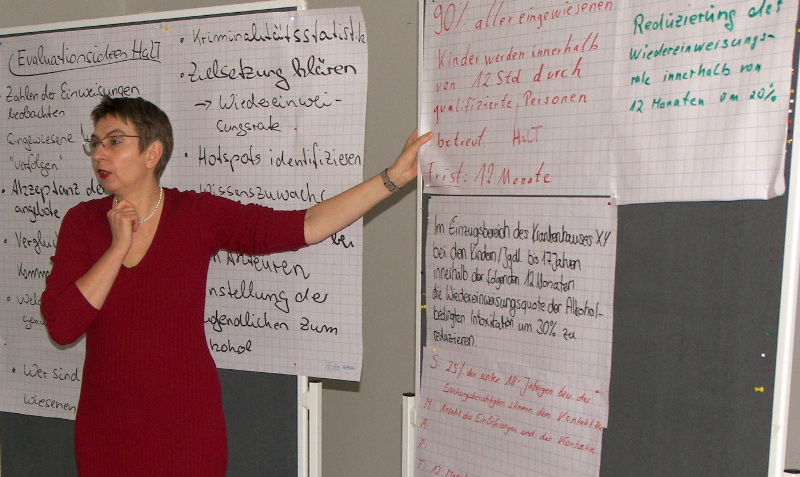 Evaluationsideen HaLT
• Zahlen der Einweisungen
beobachten
"verfolgen"
• Akzeptanz de
angebote
• Vergl
Komm
• Wel
genu
• Wer sind
wiesenen
• Kriminalitätsstatistik
• Zielsetzung klären
→ Wiedereinwei-
sungsrate
• Hotspots identifizieren
Wissenszuwachs
bei
Akteuren
instellung der
ugendlichen zum
kohol
90% aller eingewiesenen
Kinder werden innerhalb
von 12 Std durch
qualifizierte Personen
betreut HaLT
Frist: 12 Monate
Reduzierung der
Wiedereinweisungs-
rate innerhalb von
12 Monaten um 20%
Im Einzugsbereich des Krankenhauses XY
bei den Kindern/Jgdl bis 17 Jahren
innerhalb der folgenden 12 Monaten
die Wiedereinweisungsquote der Alkohol-
bedingten Intoxikation um 30% zu
reduzieren.
S: 25% der unter 18-Jährigen bzw. der
Erziehungsberechtigten stimmen dem Kontakt
M: Anzahl der Einlieferungen und der Kontakte
A:
R:
T: 12 Mona